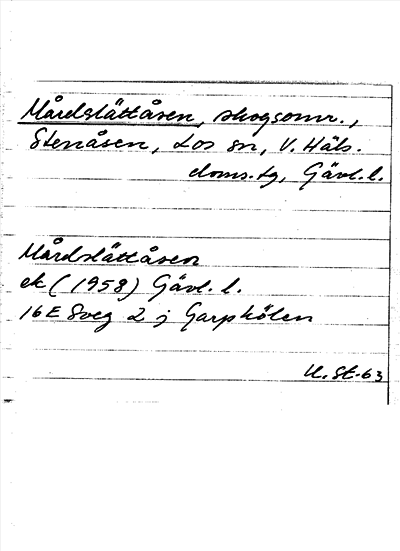 Mårdslättåsen, skogsomr.,
Stenåsen, Los sn, V. Häls.
doms.tg, Gävl.l.
Mårdslättåsen
ek (1958) Gävl. l.
16E Sveg 2 j Garphölen
U. St-63